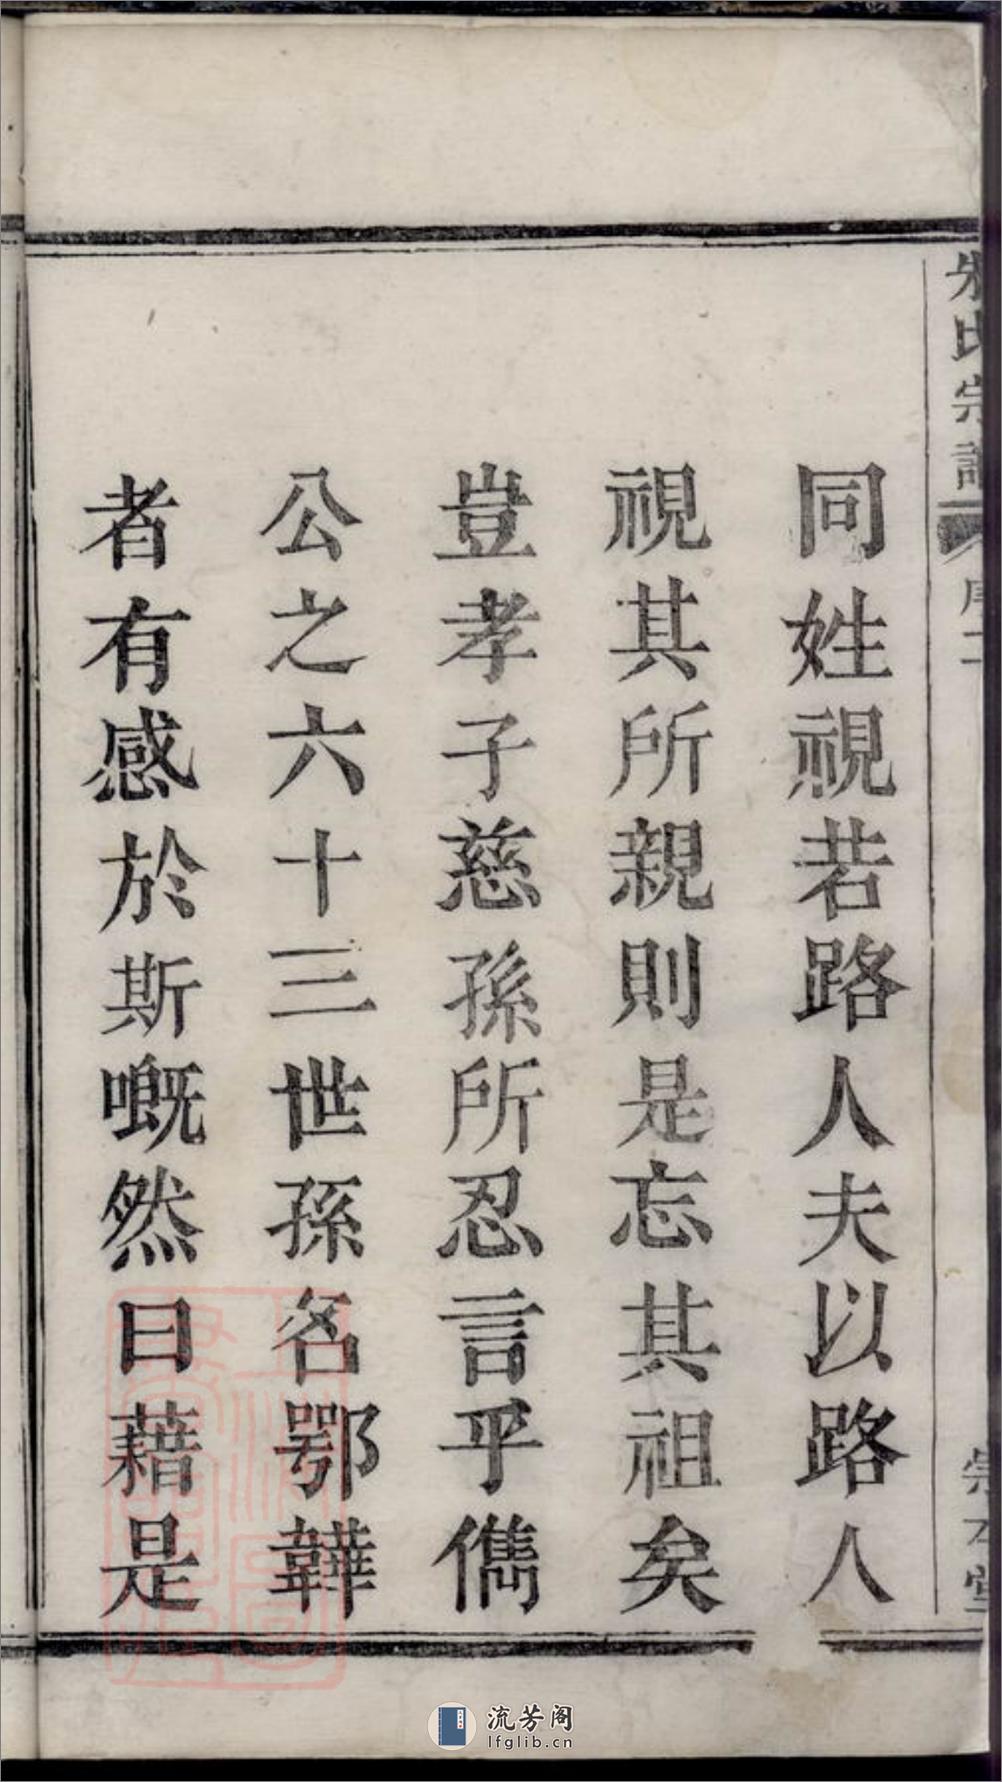 朱氏宗譜
序二
崇本堂
同姓視若路人夫以路人
視其所親則是忘其祖矣
豈孝子慈孫所忍言乎儁
公之六十三世孫名鄂韡
者有感於斯嘅然曰藉是
流芳阁
lfglib.cn